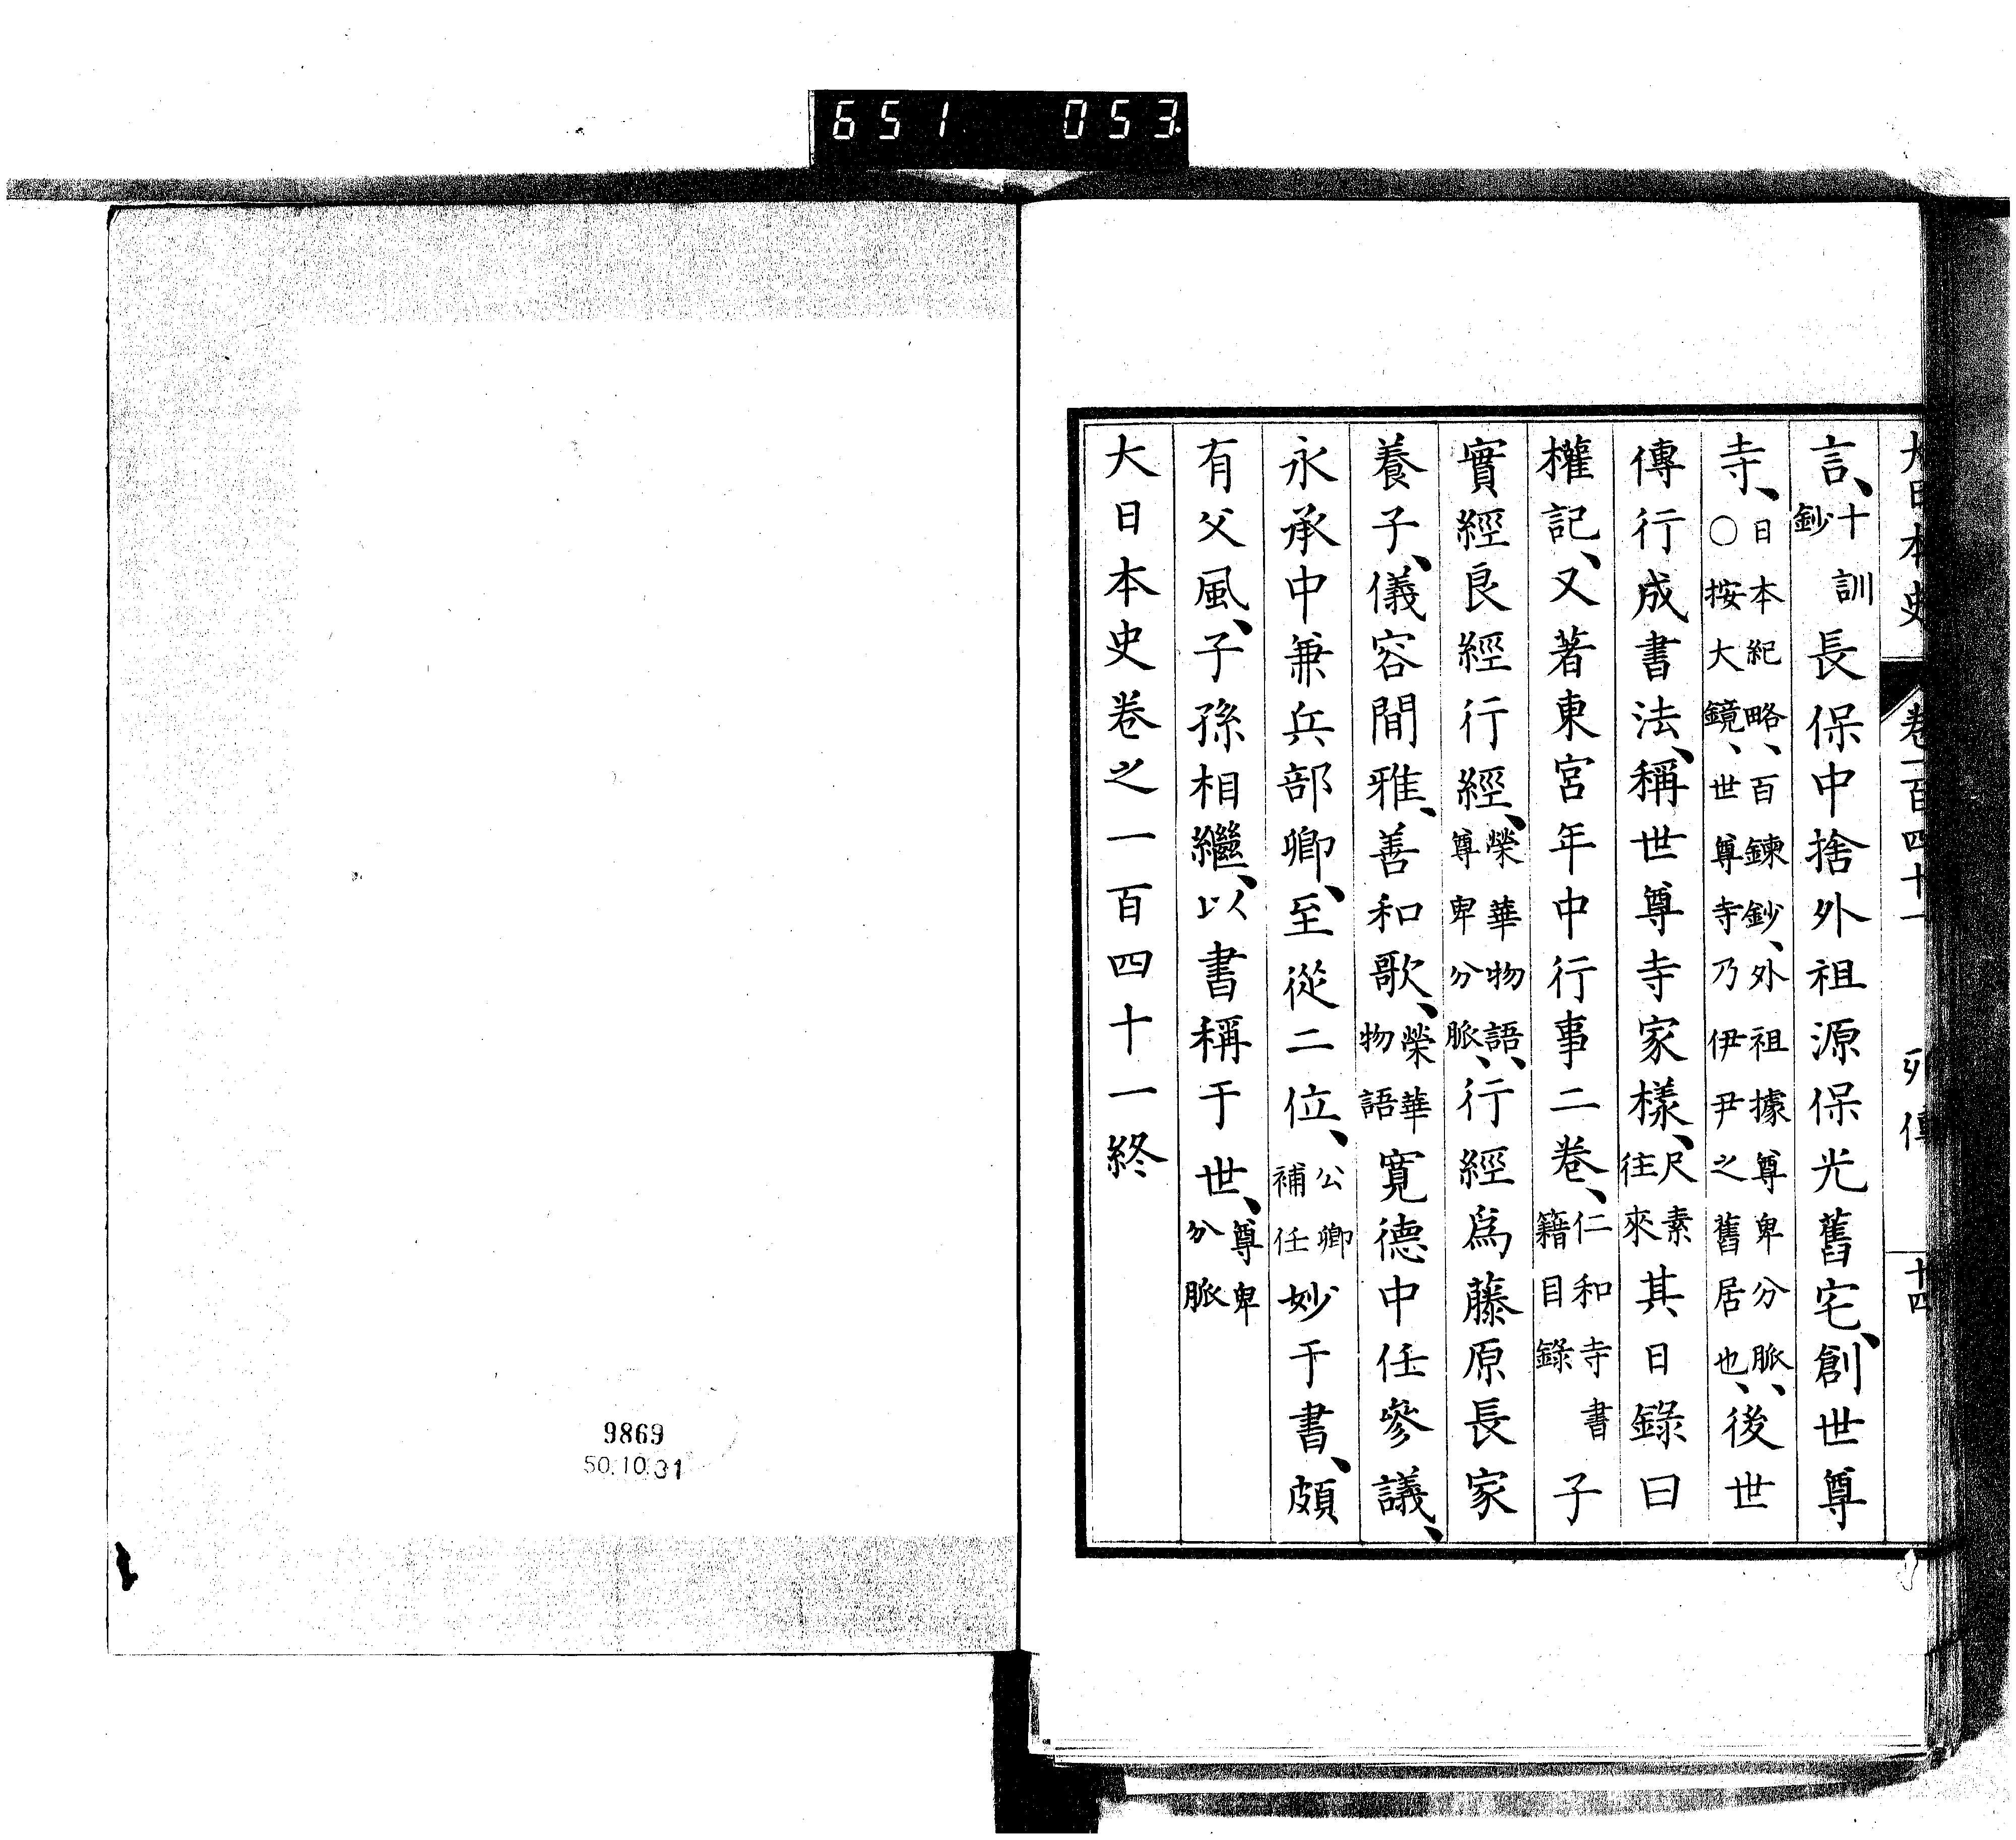 651 053
大日本史 卷一百四十一 列傳 十四
言、十訓鈔長保中捨外祖源保光舊宅、創世尊
寺、日本紀略、百鍊鈔、外祖據尊卑分脈、○按大鏡、世尊寺乃伊尹之舊居也、後世
傳行成書法、稱世尊寺家樣、尺素往來其日錄曰
權記、又著東宮年中行事二卷、仁和寺書籍目錄子
實經良經行經、榮華物語、尊卑分脈、行經爲藤原長家
養子、儀容閒雅、善和歌、榮華物語寬德中任參議、
永承中兼兵部卿、至從二位、公卿補任妙于書、頗
有父風、子孫相繼、以書稱于世、尊卑分脈
大日本史卷之一百四十一終
9869
50.10.31